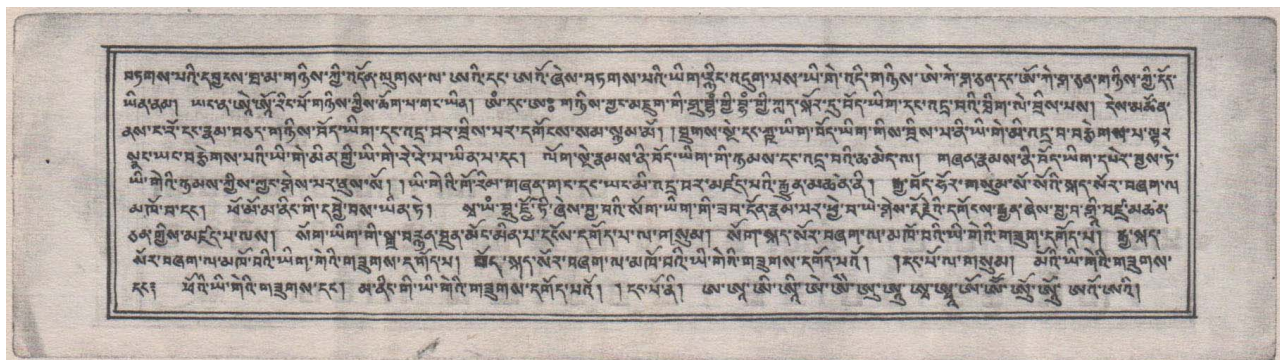 བཏགས་པའི་དབྱངས་བླ་མ་གཉིས་ཀྱི་འདོན་ལུགས་ལ་ ཨའི་དང་ ཨའོ་ཞེས་བཏགས་པའི་ཡིག་རྐྱེང་འདུག་པས་ཡི་གེ་འདི་གཉིས་ ཨེ་ཀེ་ཟླ་ཅན་དང་ཨོ་ཀེ་ཟླ་ཅན་གཉིས་ཀྱི་དོད་
ཡིན་ནམ། ཡང་ན་ཨཱེ་ཨཱོ་རིང་པོ་གཉིས་ཀྱིས་ཆོག་པ་གང་ཡིན། ཨཾ་དང་ཨཿ གཉིས་ཀྱང་མཇུག་གི་ ཀྱི་ཀླད་སྐོར་དུ་བོད་ཡིག་དང་འདྲ་བའི་ཐིག་ལེ་བྲིས་པས། དེས་མཚོན་
ནས་ང་རོ་དང་རྣམ་བཅད་གཉིས་བོད་ཡིག་དང་འདྲ་བར་བྲིས་པར་དགོངས་སམ་སྙམ་མོ། །བྲུགས་སྡེ་དང་ཀླུ་ཡིག་བོད་ཡིག་གིས་བྲིས་པ་ནི་ཡི་གེ་མི་འདྲ་བ་བརྩེགས་པ་ལྟར་
སྣང་ཡང་བརྩེགས་པའི་ཡི་གེ་མིན་གྱི་ཡི་གེ་རེ་རེ་པ་ཡིན་པ་དང་། ལོག་སྡེ་རྣམས་ནི་བོད་ཡིག་གི་རྣམས་དང་འདྲ་བའི་ཆ་མེད་ལ། གཞན་རྣམས་ནི་བོད་ཡིག་དཔེར་བྱས་ཏེ་
ཡི་གེའི་རྣམས་ཀྱིས་ཀྱང་ཤེས་པར་ནུས་སོ། །ཡི་གེའི་གོ་རིམ་གཞན་གང་དང་ཡང་མི་འདྲ་བར་མཛད་པའི་རྒྱུ་མཚན་ནི། རྒྱ་བོད་ཧོར་གསུམ་སོ་སོའི་སྐད་སོར་བཞག་ལ་
མཁོ་བ་དང་། ཕོ་མོ་མ་ནིང་གི་དབྱེ་བས་ཡིན་ཏེ། ཞེས་བྱ་བའི་སོག་ཡིག་གི་ཟབ་དོན་རྣམ་པར་ཕྱེ་བ་ཡེ་ཤེས་རྡོ་རྗེའི་དགོངས་རྒྱན་ཞེས་བྱ་བ་ མཚན་
ཅན་གྱིས་མཛད་པ་ལས། སོག་ཡིག་གི་སྒྲ་བརྙན་ཐུན་མོང་མིན་པ་དངོས་དགོད་པ་ལ་གསུམ། སོག་སྐད་སོར་བཞག་ལ་མཁོ་བའི་ཡི་གེའི་གཟུག་དགོད་པ། རྒྱ་སྐད་
སོར་བཞག་ལ་མཁོ་བའི་ཡིག་གེའི་གཟུགས་དགོད་པ། བོད་སྐད་སོར་བཞག་ལ་མཁོ་བའི་ཡི་གེའི་གཟུགས་དགོད་པའོ། །དང་པོ་ལ་གསུམ། མོའི་ཡི་གེའི་གཟུགས་
དང་། ཕོའི་ཡི་གེའི་གཟུགས་དང་། མ་ནིང་གི་ཡི་གེའི་གཟུགས་དགོད་པའོ། །དང་པོ་ནི། ཨ་ཨཱ་ཨི་ཨཱི་ ཨེ་ཨཻ་ཨུ་ཨཱུ་ ཨོ་ཨཽ་ ཨའོ་ཨའི།